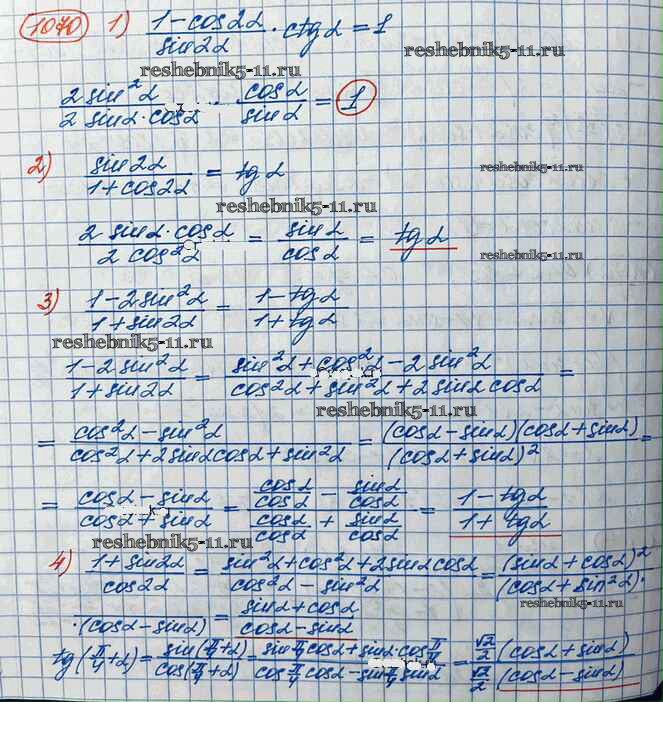 1070 1) (1-cos2α)/(sin2α) · ctgα = 1
reshebnik5-11.ru
reshebnik5-11.ru
(2 sin²α)/(2 sinα·cosα) · (cosα)/(sinα) = 1
2) (sin2α)/(1+cos2α) = tgα
reshebnik5-11.ru
reshebnik5-11.ru
(2 sinα·cosα)/(2 cos²α) = (sinα)/(cosα) = tgα
reshebnik5-11.ru
3) (1-2sin²α)/(1+sin2α) = (1-tgα)/(1+tgα)
reshebnik5-11.ru
(1-2sin²α)/(1+sin2α) = (sin²α+cos²α-2sin²α)/(cos²α+sin²α+2sinαcosα) =
reshebnik5-11.ru
= (cos²α-sin²α)/(cos²α+2sinαcosα+sin²α) = ((cosα-sinα)(cosα+sinα))/((cosα+sinα)²) =
= (cosα-sinα)/(cosα+sinα) = (cosα/cosα - sinα/cosα)/(cosα/cosα + sinα/cosα) = (1-tgα)/(1+tgα)
reshebnik5-11.ru
4) (1+sin2α)/(cos2α) = (sin²α+cos²α+2sinαcosα)/(cos²α-sin²α) = (sinα+cosα)²/(cosα+sin²α)·
reshebnik5-11.ru
·(cosα-sinα) = (sinα+cosα)/(cosα-sinα)
tg(π/4+α) = (sin(π/4+α))/(cos(π/4+α)) = (sinπ/4 cosα+sinα·cosπ/4)/(cosπ/4 cosα-sinπ/4 sinα) = (√2/2 (cosα+sinα))/(√2/2 (cosα-sinα))